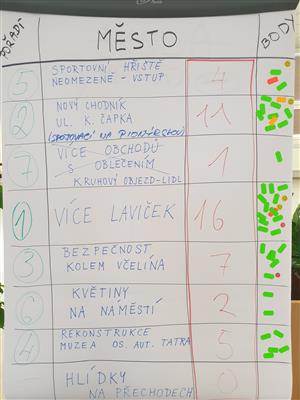 POŘADÍ MĚSTO BODY
5 SPORTOVNÍ HŘIŠTĚ 4
NEOMEZENĚ - VSTUP
2 NOVÝ CHODNÍK 11
UL. K. ČAPKA
(SPOJOVACÍ NA PIONÝRSKOU)
7 VÍCE OBCHODŮ 1
S OBLEČENÍM
KRUHOVÝ OBJEZD - LIDL
1 VÍCE LAVIČEK 16
3 BEZPEČNOST 7
KOLEM VČELÍNA
6 KVĚTINY 2
NA NAMĚSTÍ
4 REKONSTRUKCE 5
MUZEA OS. AUT. TATRA
HLÍDKY 0
NA PŘECHODECH